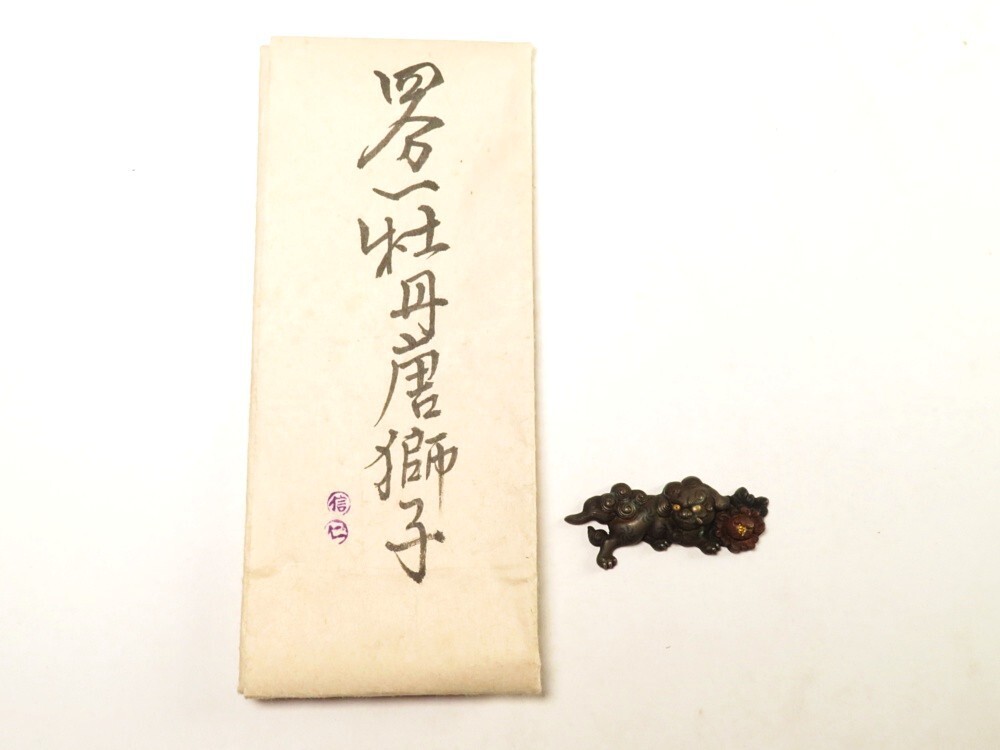 四分一牡丹唐獅子
信
仁